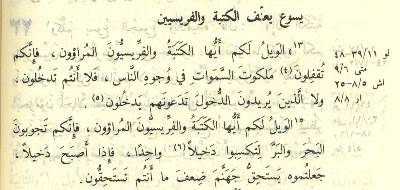 يسوع يعنّف الكتبة والفريسيين
١٣ الوَيلُ لَكم أيُّها الكَتَبَةُ والفِرِيسيُّونَ المُراؤون، فإنَّكم
تُقفِلونَ(٤) مَلكوتَ السَّمَواتِ في وُجوهِ النَّاس، فلا أَنتُم تَدخُلون،
ولا الَّذينَ يُريدونَ الدُّخولَ تَدَعونَهم يَدخُلون(٥)
١٥ الوَيلُ لَكُم أيُّها الكَتَبَةُ والفِرِّيسيُّونَ المُراؤون، فإنَّكم تَجوبونَ
البَحرَ والبَرَّ لِتَكسِبوا دَخيلاً(٦) واحِدًا، فإذا أَصبَحَ دَخيلاً،
جَعَلتُموه يَستَحِقُّ جَهَنَّمَ ضِعفَ ما أَنتُم تَستَحِقُّون.
لو ١١/٣٩-٤٨
متى ٩/٦
اش ٥/٨-٢٥
ار ٨/٨